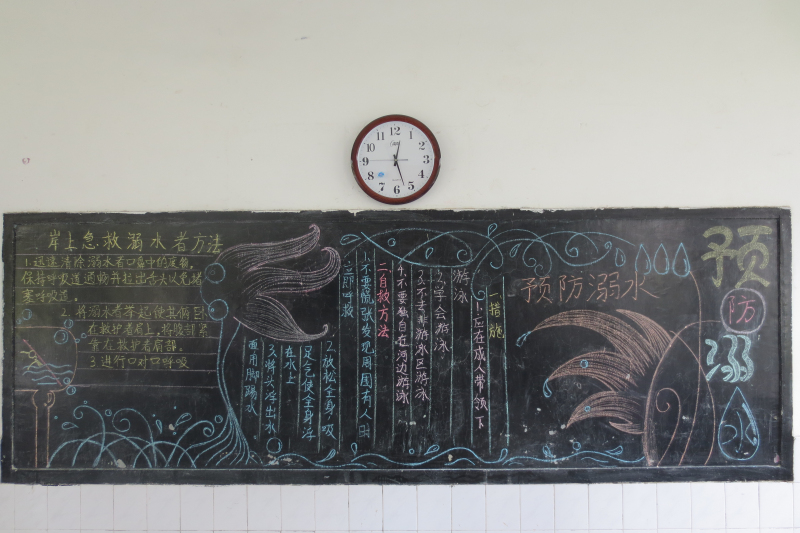 岸上急救溺水者方法
1.迅速清除溺水者口鼻中的
保持呼吸道通畅并拉出舌头以免堵
塞呼吸道。
2.将溺水者
在救护者肩上,
背在救护者肩部。
3.进行口对口呼吸
预防溺水
一措施
1.应在成人带领下
游泳
2.学会游泳
3.不去非游泳区游泳
4.不要独自在河边游泳
二自救方法
1.不要慌张发现周围有人时
立即呼救
2.放松全身,吸
足气使全身浮
在水上
3.将头浮出水
面用脚踢水
预
防
溺
水
12
1
2
3
4
5
6
7
8
9
10
11